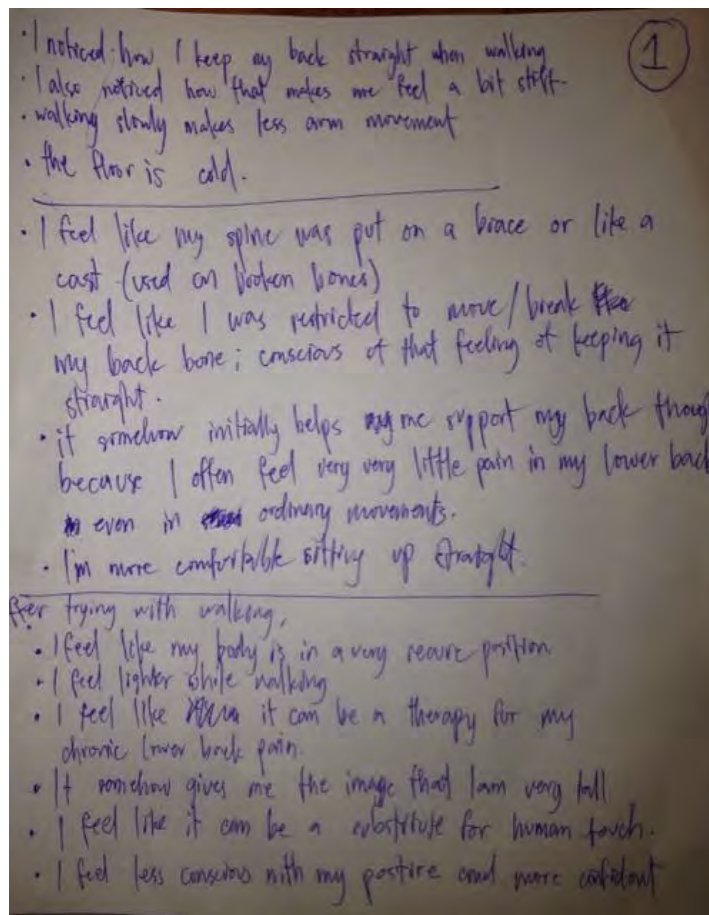 1
· I noticed how I keep my back straight when walking
· I also noticed how that makes me feel a bit stiff.
· walking slowly makes less arm movement
· the floor is cold.
· I feel like my spine was put on a brace or like a
cast (used on broken bones)
· I feel like I was restricted to move/break
my back bone; conscious of that feeling of keeping it
straight.
· it somehow initially helps me support my back thoug
because I often feel very very little pain in my lower back
even in ordinary movements.
· I'm more comfortable sitting up straight.
fter trying with walking,
· I feel like my body is in a very secure position
· I feel lighter while walking
· I feel like it can be a therapy for my
chronic lower back pain.
· It somehow gives me the image that I am very tall
· I feel like it can be a substitute for human touch.
· I feel less conscious with my posture and more confident